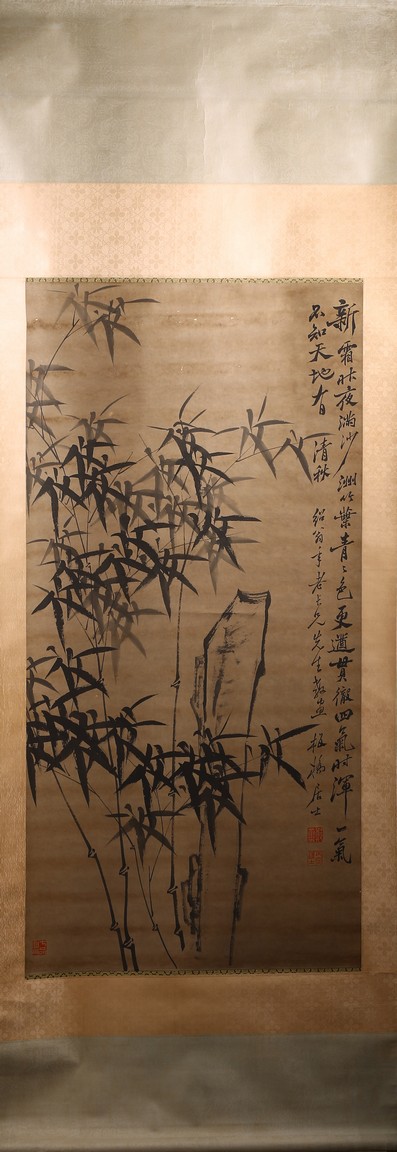 新霜昨夜满沙洲竹叶青青色更遒贯徹四氣时渾一氣
不知天地有清秋
年老長兄先生教画板橋居士